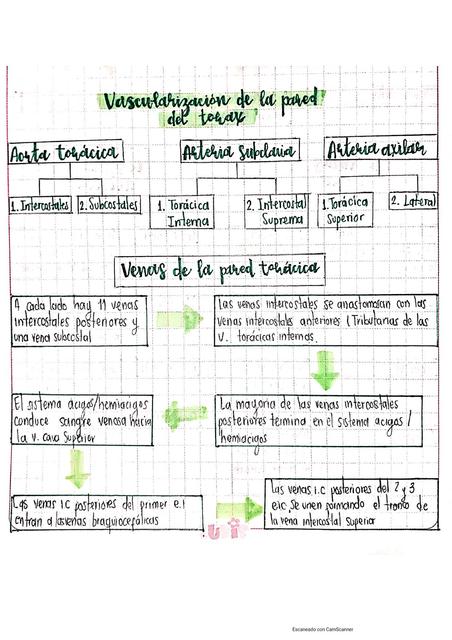 Vascularización de la pared
del torax
Aorta torácica
Arteria Subclavia
Arteria axilar
1. Intercostales
2. Subcostales
1. Torácica
Interna
2. Intercostal
Suprema
1. Torácica
Superior
2. Lateral
Venas de la pared torácica
A cada lado hay 11 venas
intercostales posteriores y
una vena subcostal
Las venas intercostales se anastomosan con las
venas intercostales anteriores (Tributarias de las
V. torácicas internas
La mayoria de las venas intercostales
posteriores termina en el sistema acigos /
hemiacigos
El sistema acigos/hemiacigos
conduce sangre venosa hacia
la V. cava Superior
Las venas I.C posteriores del primer e.I
entran a las venas braquiocefálicas
las venas i.c posteriores del 2 y 3
eic se unen formando el tronco de
la vena intercostal superior
Escaneado con CamScanner